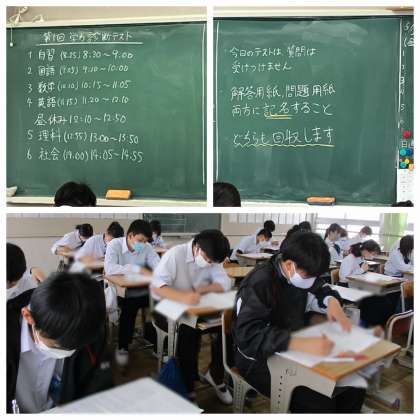 第1回 学力診断テスト
1 自習 (8.25) 8.30～9.00
2 国語 (9.05) 9.10～10.00
3 数学 (10.10) 10.15～11.05
4 英語 (11.15) 11.20～12.10
昼休み 12:10～12:50
5 理科 (12.55) 13:00～13:50
6 社会 (14.00) 14.05～14.55
・今日のテストは、質問は
受けつけません
・解答用紙、問題用紙
両方に記名すること
・どちらも回収します